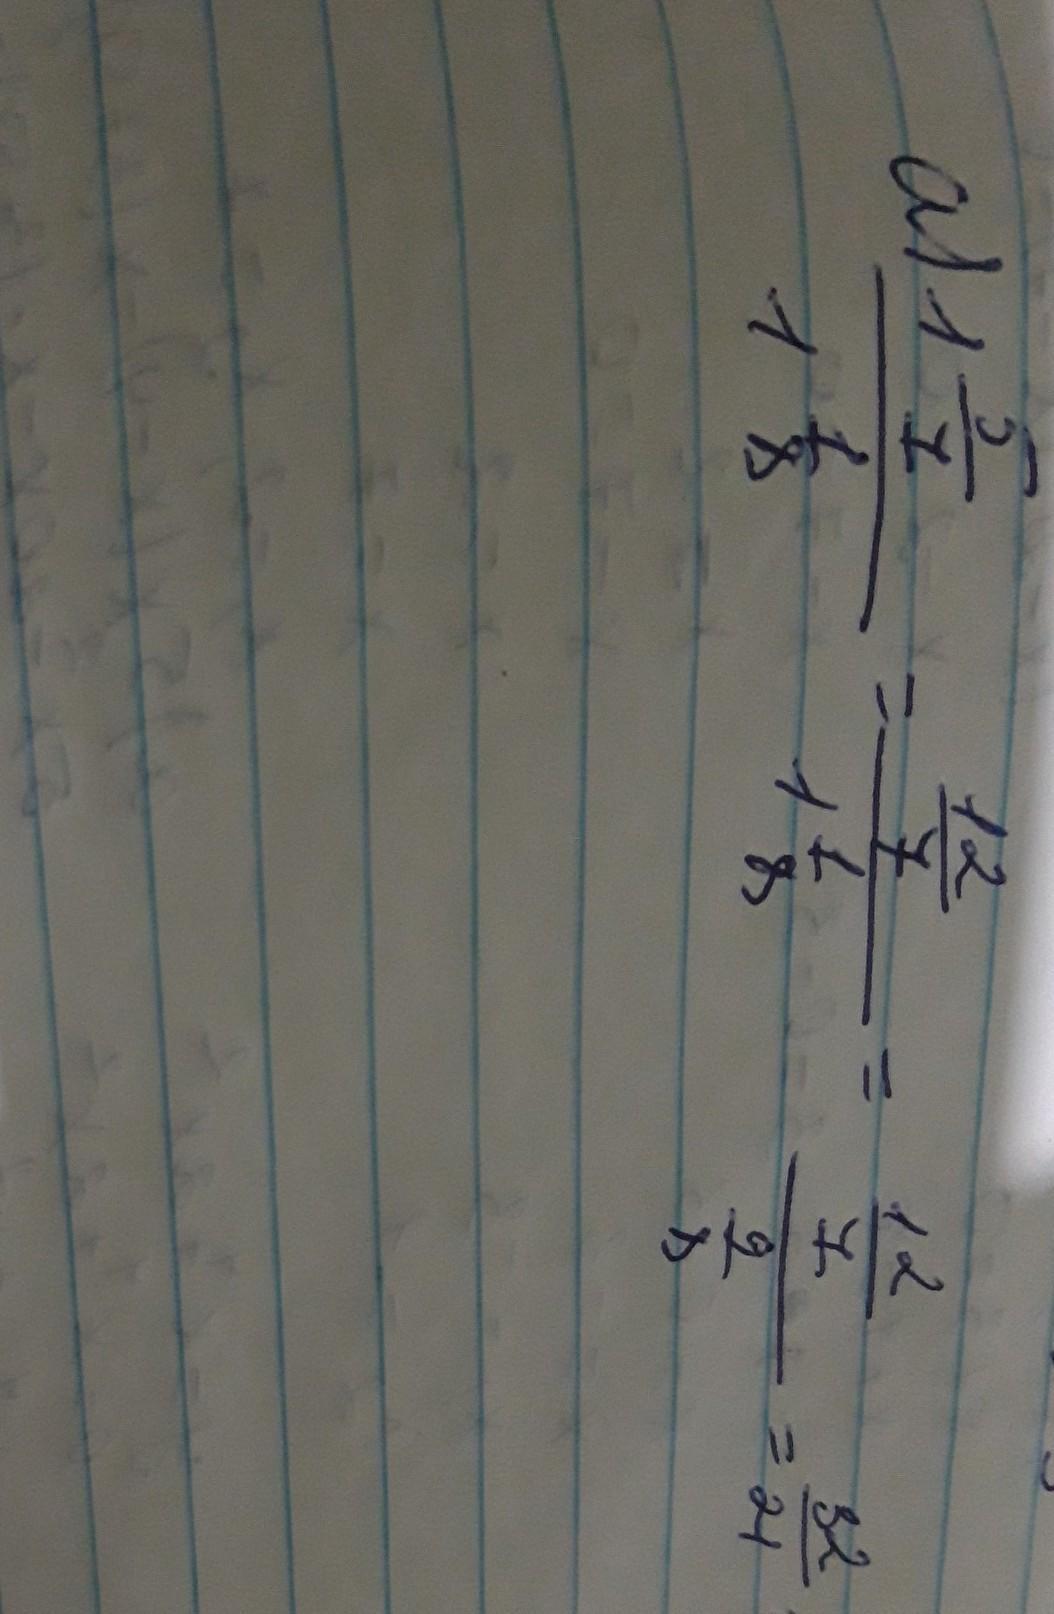 a) 1 5/7 / 1 1/8 = 12/7 / 1 1/8 = 12/7 / 9/8 = 32/21